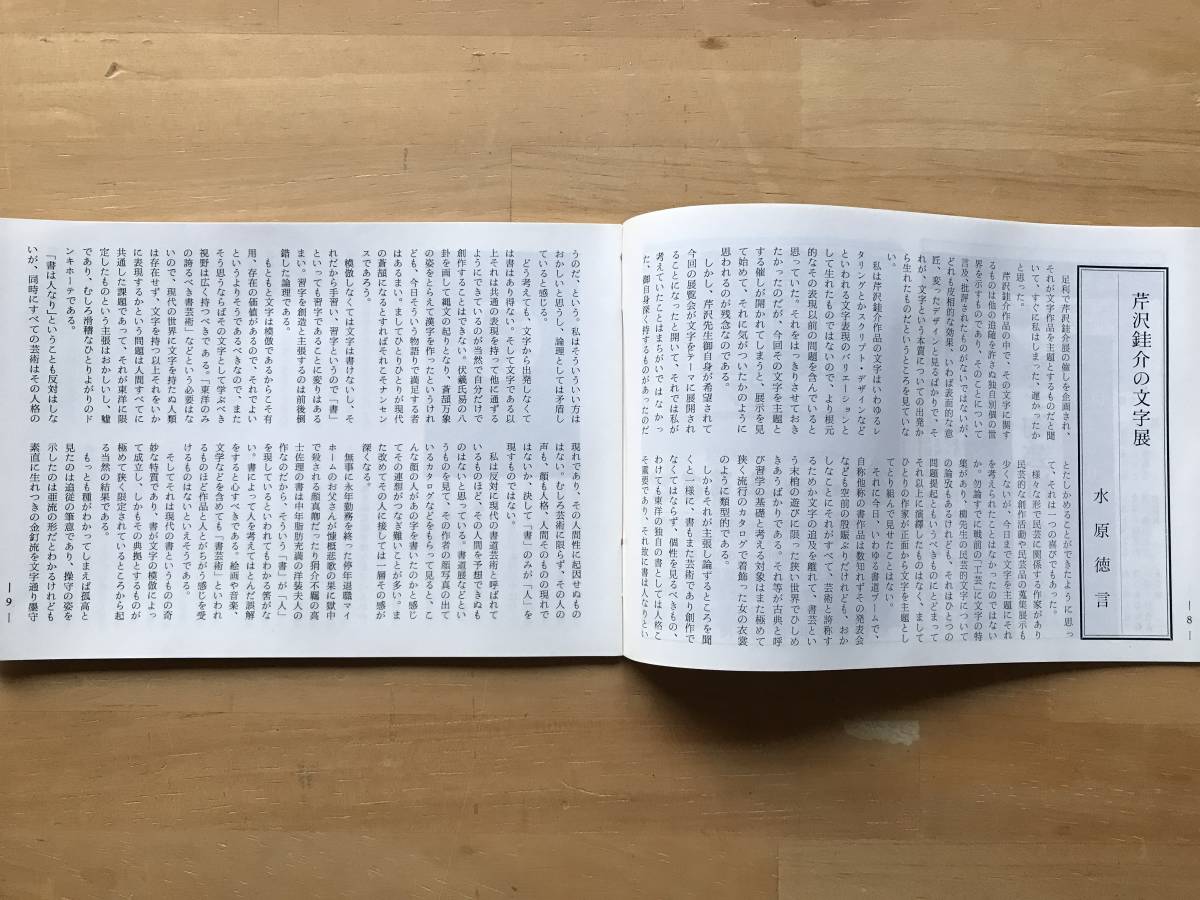 芹沢銈介の文字展
水原徳言
足利で芹沢銈介展の催しを企画され、
それが文字作品を主題とするものだと聞
いて、すぐに私はしまった、遅かったか
と思った。
芹沢銈介作品の中で、その文字に関す
るものは他の追確を許さぬ独自別個の世
界を示すものであり、そのことについて
言及、批評されたものがないではないが、
どれも皮相的な効果、いわば表面的な意
匠、変ったデザインと見るばかりで、そ
れが、文字という本質についての出発か
ら生れたものだというところを見ていな
い。
私は芹沢銈介作品の文字はいわゆるレ
タリングとかスクリプト・デザインなど
といわれる文字表現のバリエーションと
して生れたものではないので、より根元
的なその表現以前の問題を含んでいると
思っていた。それをはっきりさせておき
たかったのだが、今回その文字を主題と
する催しが開かれてしまうと、展示を見
て始めて、それに気がついたかのように
思われるのが残念なのである。
しかし、芹沢先生御自身が希望されて
今回の展覧会が文字をテーマに展開され
ることになったと聞いて、それでは私が
考えていたことはまちがいではなかっ
た、御自身深く持するものがあったのだ
とたしかめることができたように思っ
て、それは一つの喜びでもあった。
様々な形で民芸に関係する作家があり
民芸的な創作活動や民芸品の蒐集展示も
少くないが、今日まで文字を主題にそれ
を考えられたことはなかったのではない
か。勿論すでに戦前の「工芸」に文字の特
集があり、柳先生の民芸的文字について
の論攷もあるけれども、それはひとつの
問題提起ともいうべきものにとどまって
それ以上に演繹したものはなく、まして
ひとりの作家が正面から文字を主題とし
てとり組んで見せたことはない。
それに今日、いわゆる書道ブームで、
自称他称の書作品は数知れずその発表会
なども空前の殷賑ぶりだけれども、おか
しなことにそれがすべて、芸術と誇称す
るためか文字の追及を離れて、書芸とい
う末梢の遊びに限った狭い世界でひしめ
きあうばかりである。それ等が古典と呼
び習学の基礎と考える対象はまた極めて
狭く流行のカタログで着飾った女の衣裳
のように類型的である。
しかもそれが主張し論ずるところを聞
くと一様に、書もまた芸術であり創作で
なくてはならず、個性を見るべきもの、
わけても東洋の独自の書としては人格こ
そ重要であり、それ故に書は人なりとい
―8―
うのだ、という。私はそういういい方は
おかしいと思うし、論理としては矛盾し
ていると感じる。
どう考えても、文字から出発しなくて
は書はあり得ない。そして文字である以
上それは共通の表現を持って他に通ずる
ようにできているのが当然で自分だけで
創作することはできない。伏羲氏易の八
卦を画して縄文の起りとなり、蒼頡万象
の姿をとらえて漢字を作ったというけれ
ども、今日そういう物語りで満足する者
はあるまい。ましてひとりひとりが現代
の蒼頡になるとすればそれこそナンセン
スであろう。
模倣しなくては文字は書けないし、そ
れだから手習い、習字というので「書」
といっても習字であることに変りはある
まい。習字を創造と主張するのは前後倒
錯した論理である。
もともと文字は模倣であるからこそ有
用、存在の価値があるので、それでよい
というよりそうであるべきなので、また
そう思うならばその文字として学ぶべき
視野は広く持つべきである。「東洋のみ
の誇るべき書芸術」などという必要はな
いので、現代の世界に文字を持たぬ人類
は存在せず、文字を持つ以上それをいか
に表現するかという問題は人間すべてに
共通した課題であって、それが東洋に限
定したものという主張はおかしいし、嘘
であり、むしろ滑稽なひとりよがりのド
ンキホーテである。
「書は人なり」ということも反対はしな
いが、同時にすべての芸術はその人格の
現れであり、その人間性に起因せぬもの
はない。むしろ芸術に限らず、その人の
声も、顔も人格、人間そのものの現れで
はないか、決して「書」のみが「人」を
現すものではない。
私は反対に現代の書道芸術と呼ばれて
いるものほど、その人間を予想できぬも
のはないと思っている。書道展などとい
うものを見て、その作者の顔写真の出て
いるカタログなどをもらって見ると、こ
んな顔の人があの字を書いたのかと感じ
てその連想がつなぎ難いことが多い。ま
た改めてその人に接しては一層その感が
深くなる。
無事に永年勤務を終った停年退職マイ
ホームのお父さんが慷慨悲歌の果に獄中
で殺される顔真卿だったり狷介不羈の高
士佐理の書は中年脂肪充満の洋装夫人の
作なのだから、そういう「書」が「人」
を現しているといわれてもわかる筈がな
い。書によって人を考えてはとんだ誤解
をすると心すべきである。絵画や音楽、
文学などを含めても「書芸術」といわれ
るものほど作品と人とがちがう感じを受
けるものはないといえそうである。
そしてそれは現代の書というものの奇
妙な特質であり、書が文字の模倣によっ
て成立し、しかもその典拠とするものが
極めて狭く限定されているところから起
る当然の結果である。
もっとも種がわかってしまえば孤高と
見たのは追従の筆意であり、操守の姿を
示したのは亜流の形だとわかるけれども
素直に生れつきの金釘流を文字通り墨守
―9―